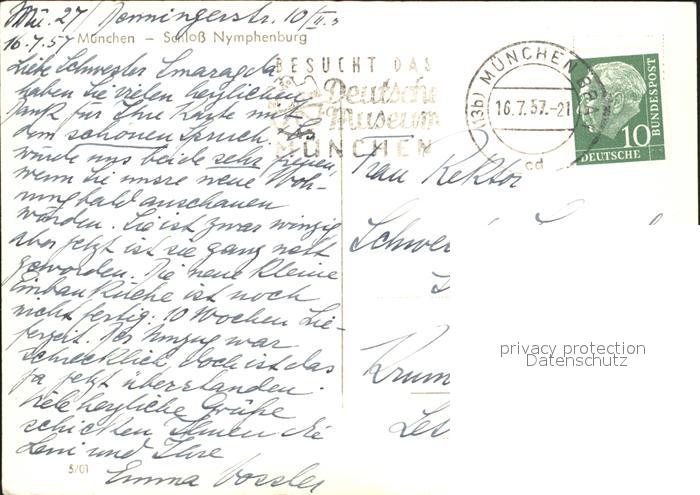 Mü. 27 / Denningerstr. 10/II.
16.7.57 München – Schloß Nymphenburg
Liebe Schwester Smaragda
haben Sie vielen herzlichen
Dank für Ihre Karte mit
dem schönen Spruch. Es
würde uns beide sehr freuen,
wenn Sie unsre neue Woh-
nung bald anschauen
würden. Sie ist zwar winzig
aber jetzt ist sie ganz nett
geworden. Die neue kleine
Einbauküche ist noch
nicht fertig. 10 Wochen Lie-
ferzeit. Der Umzug war
schrecklich, doch ist das
ja jetzt überstanden.
Viele herzliche Grüße
schicken Ihnen die
Leni und Ihre
Emma Vossler
5/01
BESUCHT DAS
Deutsche
Museum
MÜNCHEN
(13b) MÜNCHEN BPA
16.7.57.-21
cd
10
DEUTSCHE BUNDESPOST
Frau Rektor
Schwe
Krum
privacy protection
Datenschutz